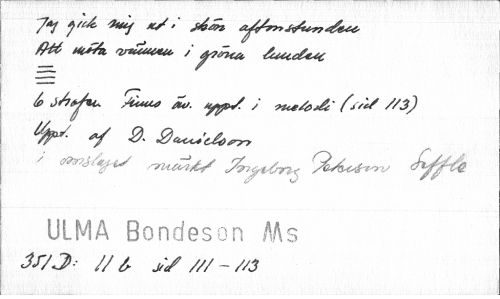 Jag gick mig ut i skön aftonstunden
Att möta vännen i gröna lunden
6 strofer. Finns äv. uppt. i melodi (sid 113)
Uppt. af D. Danielson
i omslaget märkt Ingeborg Petersson Seffle
ULMA Bondeson Ms
351 D: 11 b sid 111-113